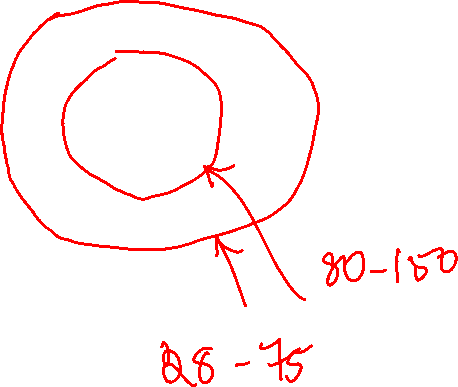 80-150
28-75